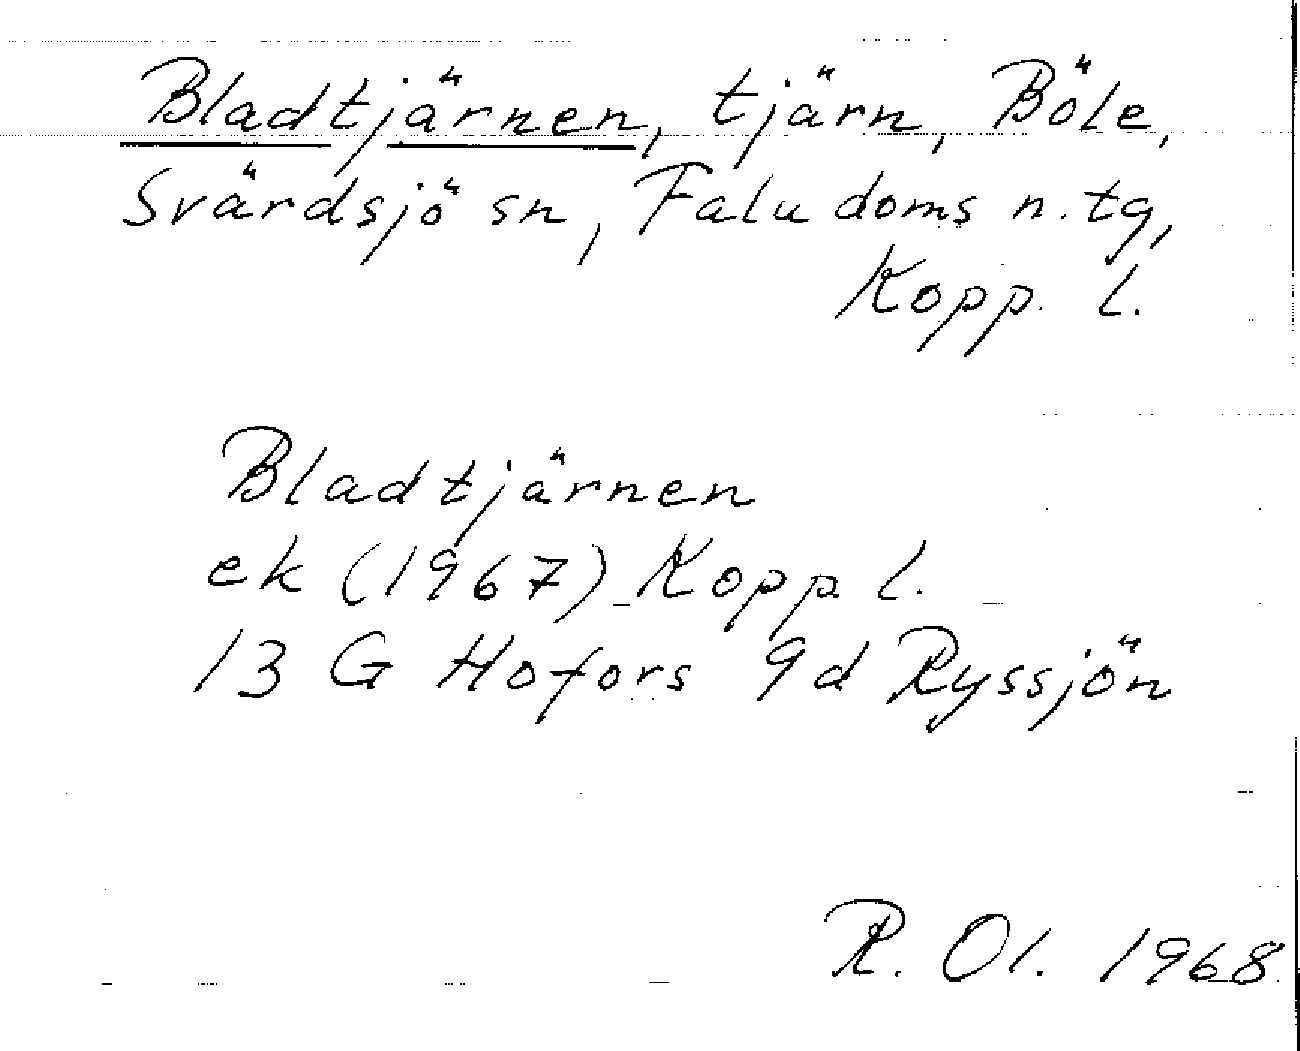 Bladtjärnen, tjärn, Böle,
Svärdsjö sn, Falu doms n. tg,
Kopp. l.
Bladtjärnen
ek (1967) Kopp l.
13 G Hofors 9d Ryssjön
R. Ol. 1968